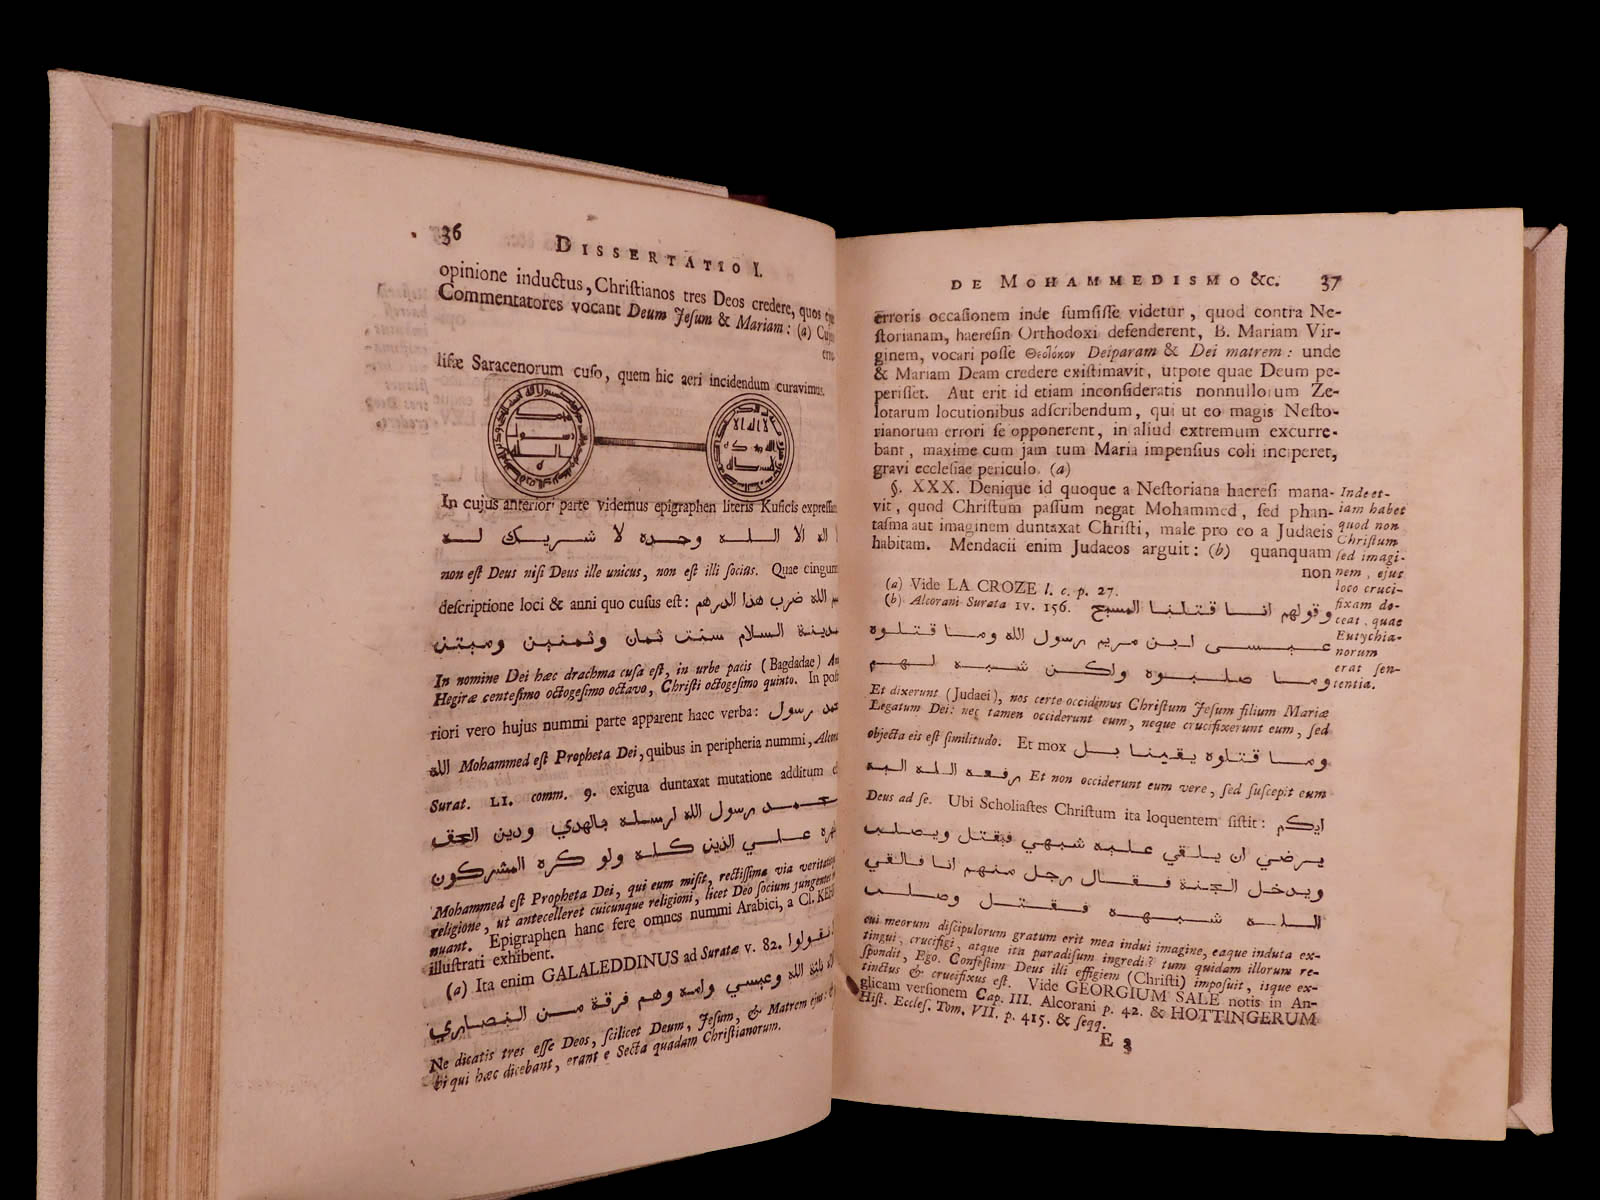 36
DISSERTATIO I.
opinione inductus, Chriſtianos tres Deos credere, quos
Commentatores vocant Deum Jeſum & Mariam: (a)
liſæ Saracenorum cuſo, quem hic aeri incidendum curavimus.
In cujus anteriori parte videmus epigraphen literis Kuficis
الا اللـه وحده لا شريك لـه
non eſt Deus niſi Deus ille unicus, non eſt illi ſocius. Quae
deſcriptione loci & anni quo cuſus eſt: الله ضرب هذا الدرهم
السلام سنت ثمان وثمنين وميتن
In nomine Dei hæc drachma cuſa eſt, in urbe pacis (Bagdadae)
Hegiræ centeſimo octogeſimo octavo, Chriſti octogeſimo quinto. In
riori vero hujus nummi parte apparent haec verba: رسول
الله Mohammed eſt Propheta Dei, quibus in peripheria nummi,
Surat. LI. comm. 9. exigua duntaxat mutatione additum
رسول الله ارسله بالهدي ودين الحق
علـي الدين كله ولو كره المشركون
Mohammed eſt Propheta Dei, qui eum miſit, rectiſſima via
religione, ut antecelleret cuicunque religioni, licet Deo ſocium
nuant. Epigraphen hanc fere omnes nummi Arabici, a Cl.
illuſtrati exhibent.
(a) Ita enim GALALEDDINUS ad Suratæ v. 82.
الله وعيسي وامه وهم فرقة من النصاري
Ne dicatis tres eſſe Deos, ſcilicet Deum, Jeſum, & Matrem ejus:
qui hæc dicebant, erant e Secta quadam Chriſtianorum.
DE MOHAMMEDISMO &c. 37
erroris occaſionem inde ſumſiſſe videtur, quod contra Ne-
ſtorianam, haereſin Orthodoxi defenderent, B. Mariam Vir-
ginem, vocari poſſe Θεοτόκον Deiparam & Dei matrem: unde
& Mariam Deam credere exiſtimavit, utpote quae Deum pe-
periſſet. Aut erit id etiam inconſideratis nonnullorum Ze-
lotarum locutionibus adſcribendum, qui ut eo magis Neſto-
rianorum errori ſe opponerent, in aliud extremum excurre-
bant, maxime cum jam tum Maria impenſius coli inciperet,
gravi eccleſiae periculo. (a)
§. XXX. Denique id quoque a Neſtoriana haereſi mana-
vit, quod Chriſtum paſſum negat Mohammed, ſed phan-
taſma aut imaginem duntaxat Chriſti, male pro eo a Judaeis
habitam. Mendacii enim Judaeos arguit: (b) quanquam
non
Inde et-
iam habet
quod non
Chriſtum
ſed imagi-
nem, ejus
loco cruci-
fixam do-
ceat, quae
Eutychia-
norum
erat ſen-
tentia.
(a) Vide LA CROZE l. c. p. 27.
(b) Alcorani Surata IV. 156. وقولهم انـا قـتلنـا المسيح
عيـسـى ابـن مريم رسول الله ومـا قتلوه
ومـا صلبوه ولـكن شبـه لـهم
Et dixerunt (Judaei), nos certe occidimus Chriſtum Jeſum filium Mariæ
Legatum Dei: nec tamen occiderunt eum, neque crucifixerunt eum, ſed
objecta eis eſt ſimilitudo. Et mox ومـا قتلوه يقينـا بـل
رفعـه اللـه اليه Et non occiderunt eum vere, ſed ſuſcepit eum
Deus ad ſe. Ubi Scholiaſtes Chriſtum ita loquentem ſiſtit: ايكم
يـرضي ان يلقي عليه شبهي فيقتل ويصلب
ويدخل الجنة فـقـال رجل منهم انـا فالقي
اللـه شبهه فـقتل وصلب
cui meorum diſcipulorum gratum erit mea indui imagine, eaque induta ex-
tingui, crucifigi, atque ita paradiſum ingredi? tum quidam illorum re-
ſpondit, Ego. Confeſtim Deus illi effigiem (Chriſti) impoſuit, iſque ex-
tinctus & crucifixus eſt. Vide GEORGIUM SALE notis in An-
glicam verſionem Cap. III. Alcorani p. 42. & HOTTINGERUM
Hiſt. Eccleſ. Tom. VII. p. 415. & ſeqq.
E 3